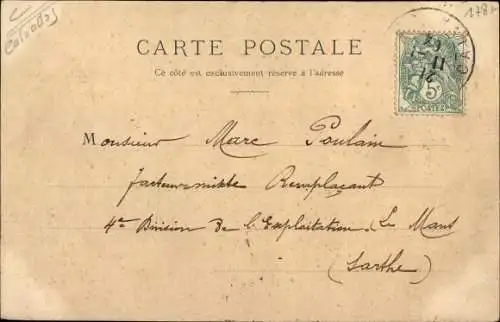 Calvados
178
CARTE POSTALE
Ce côté est exclusivement réservé à l'adresse
5c
POSTES
21
11
Monsieur Marc Poulain
facteur-mixte Remplaçant
4e Division de l'Exploitation Le Mans
(Sarthe)